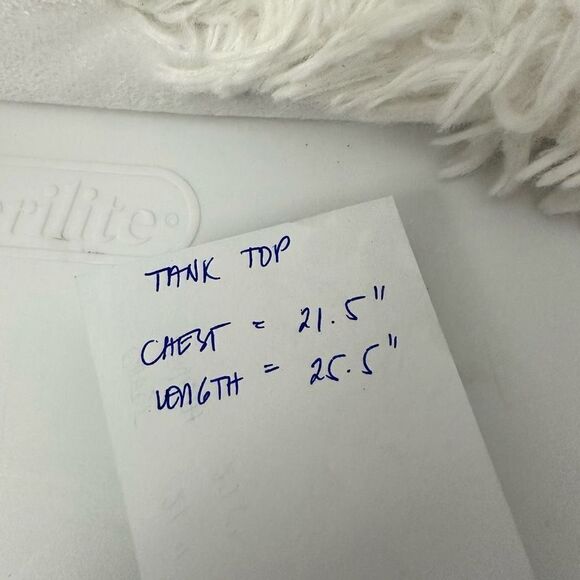 erilite
TANK TOP
CHEST = 21.5"
LENGTH = 25.5"